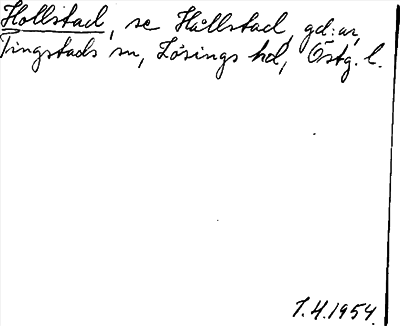 Hollstad, se Hållstad, gd:ar,
Tingstads sn, Lösings hd, Östg. l.
1.4.1954